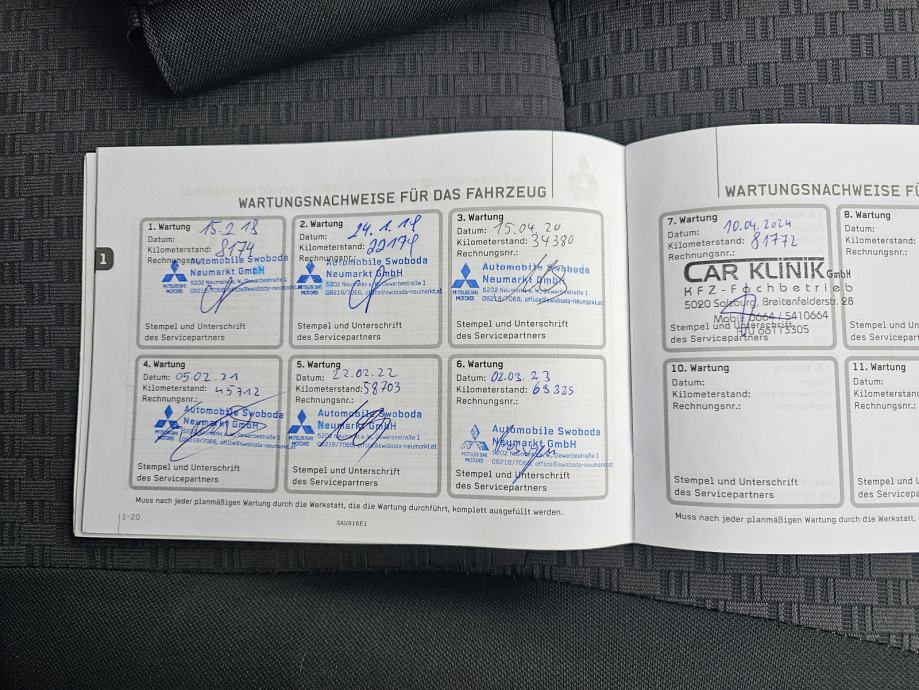 WARTUNGSNACHWEISE FÜR DAS FAHRZEUG
1. Wartung
Datum: 15.2.18
Kilometerstand: 8174
Rechnungsnr.:
Automobile Swoboda
Neumarkt GmbH
5202 Neumarkt a. W., Gewerbestraße 1
06216/7066, office@swoboda-neumarkt.at
MITSUBISHI
MOTORS
Stempel und Unterschrift
des Servicepartners
2. Wartung
Datum: 24.1.19
Kilometerstand: 20179
Rechnungsnr.:
Automobile Swoboda
Neumarkt GmbH
5202 Neumarkt a. W., Gewerbestraße 1
06216/7066, office@swoboda-neumarkt.at
MITSUBISHI
MOTORS
Stempel und Unterschrift
des Servicepartners
3. Wartung
Datum: 15.04.20
Kilometerstand: 34380
Rechnungsnr.:
Automobile Swoboda
Neumarkt GmbH
5202 Neumarkt a. W., Gewerbestraße 1
06216/7066, office@swoboda-neumarkt.at
MITSUBISHI
MOTORS
Stempel und Unterschrift
des Servicepartners
1
4. Wartung
Datum: 05.02.21
Kilometerstand: 45712
Rechnungsnr.:
Automobile Swoboda
Neumarkt GmbH
5202 Neumarkt a. W., Gewerbestraße 1
06216/7066, office@swoboda-neumarkt.at
MITSUBISHI
MOTORS
Stempel und Unterschrift
des Servicepartners
5. Wartung
Datum: 22.02.22
Kilometerstand: 58703
Rechnungsnr.:
Automobile Swoboda
Neumarkt GmbH
5202 Neumarkt a. W., Gewerbestraße 1
06216/7066, office@swoboda-neumarkt.at
MITSUBISHI
MOTORS
Stempel und Unterschrift
des Servicepartners
6. Wartung
Datum: 02.03.23
Kilometerstand: 68325
Rechnungsnr.:
Automobile Swoboda
Neumarkt GmbH
5202 Neumarkt a. W., Gewerbestraße 1
06216/7066, office@swoboda-neumarkt.at
MITSUBISHI
MOTORS
Stempel und Unterschrift
des Servicepartners
Muss nach jeder planmäßigen Wartung durch die Werkstatt, die die Wartung durchführt, komplett ausgefüllt werden.
1-20
SAU916E1
WARTUNGSNACHWEISE FÜ
7. Wartung
Datum: 10.04.2024
Kilometerstand: 81772
Rechnungsnr.:
CAR KLINIK GmbH
KFZ-Fachbetrieb
5020 Salzburg, Breitenfelderstr. 28
Mobil: 0664 / 5410664
ATU 66173305
Stempel und Unterschrift
des Servicepartners
8. Wartung
Datum:
Kilometerstand:
Rechnungsnr.:
Stempel und Unters
des Servicepartners
10. Wartung
Datum:
Kilometerstand:
Rechnungsnr.:
Stempel und Unterschrift
des Servicepartners
11. Wartung
Datum:
Kilometerstand:
Rechnungsnr.:
Stempel und Unters
des Servicepartners
Muss nach jeder planmäßigen Wartung durch die Werkstatt,